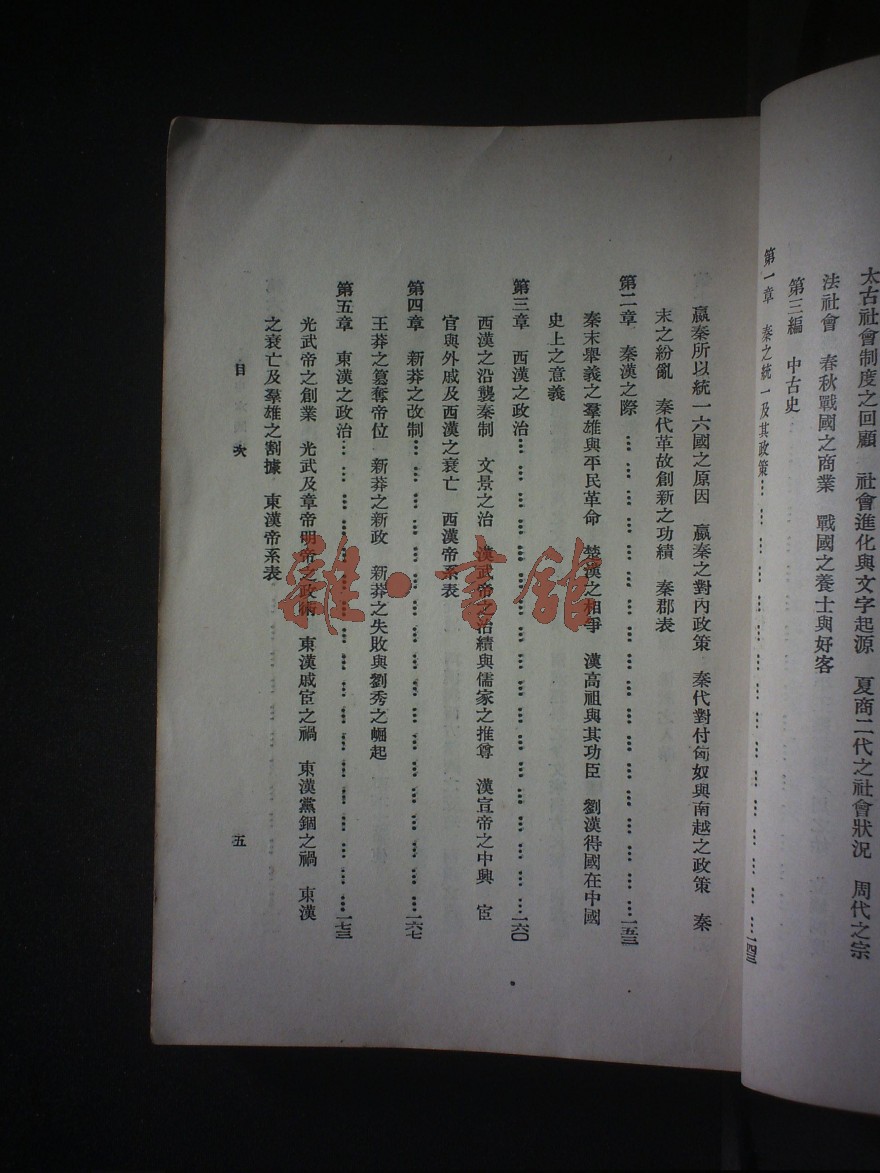 太古社會制度之回顧　社會進化與文字起源　夏商二代之社會狀況　周代之宗
法社會　春秋戰國之商業　戰國之養士與好客
第三編　中古史
第一章　秦之統一及其政策……………………一四三
嬴秦所以統一六國之原因　嬴秦之對內政策　秦代對付匈奴與南越之政策　秦
末之紛亂　秦代革故創新之功績　秦郡表
第二章　秦漢之際……………………一五三
秦末舉義之羣雄與平民革命　楚漢之相爭　漢高祖與其功臣　劉漢得國在中國
史上之意義
第三章　西漢之政治……………………一六〇
西漢之沿襲秦制　文景之治　漢武帝之治績與儒家之推尊　漢宣帝之中興　宦
官與外戚及西漢之衰亡　西漢帝系表
第四章　新莽之改制……………………一六七
王莽之篡奪帝位　新莽之新政　新莽之失敗與劉秀之崛起
第五章　東漢之政治……………………一七三
光武帝之創業　光武及章帝明帝之政術　東漢戚宦之禍　東漢黨錮之禍　東漢
之衰亡及羣雄之割據　東漢帝系表
目　次
五
雜·書館